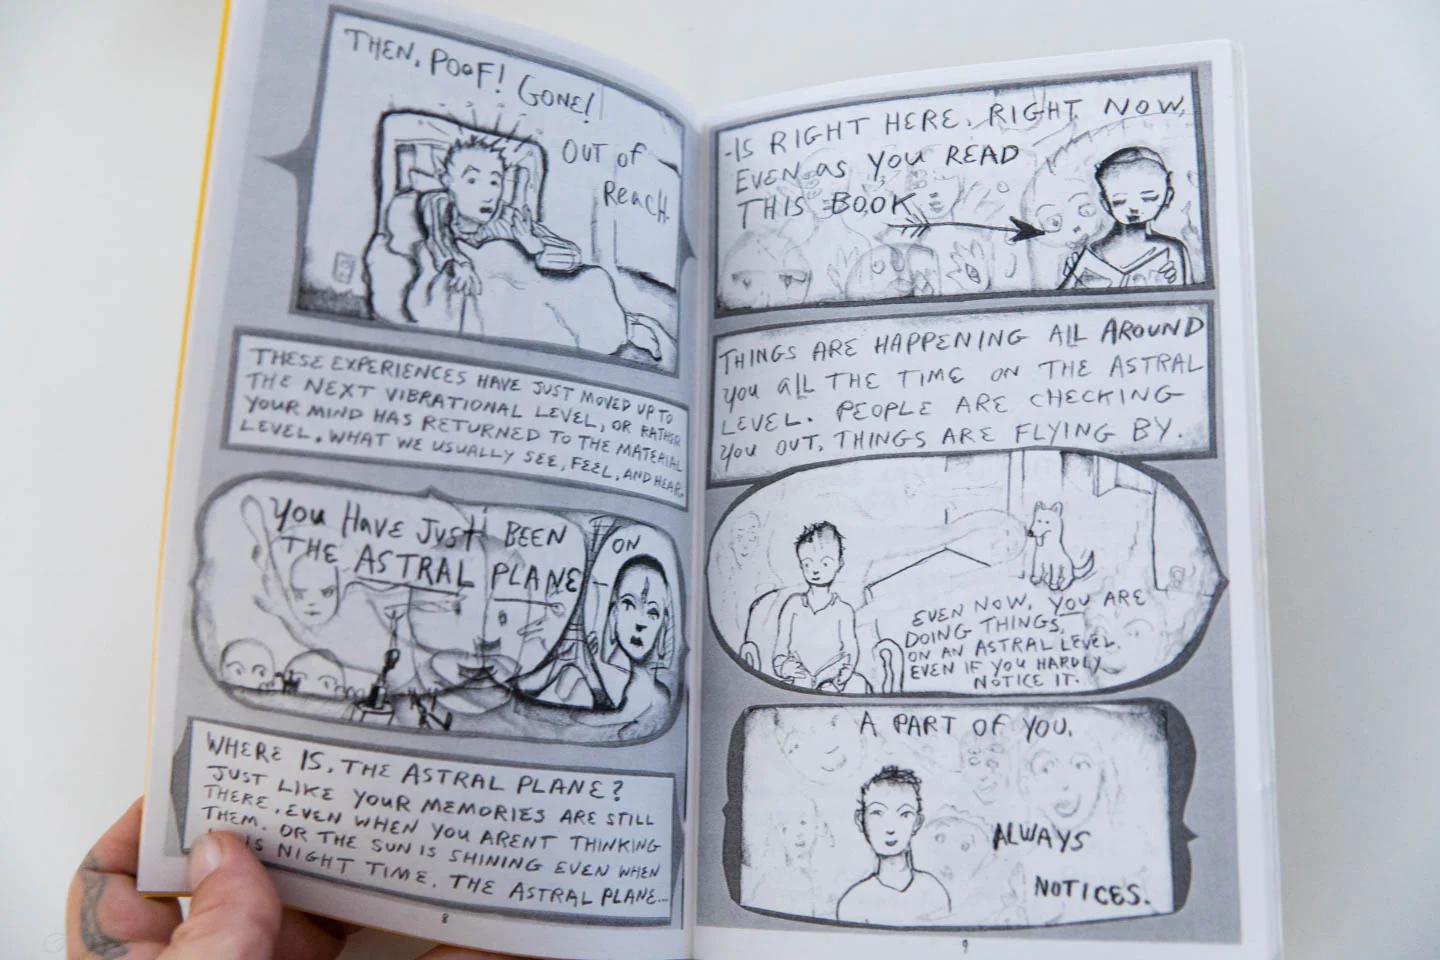 THEN, POOF! GONE!
OUT OF
REACH.
THESE EXPERIENCES HAVE JUST MOVED UP TO
THE NEXT VIBRATIONAL LEVEL, OR RATHER
YOUR MIND HAS RETURNED TO THE MATERIAL
LEVEL. WHAT WE USUALLY SEE, FEEL, AND HEAR.
YOU HAVE JUST BEEN ON
THE ASTRAL PLANE
WHERE IS, THE ASTRAL PLANE?
JUST LIKE YOUR MEMORIES ARE STILL
THERE, EVEN WHEN YOU ARENT THINKING
THEM. OR THE SUN IS SHINING EVEN WHEN
IS NIGHT TIME. THE ASTRAL PLANE...
8
-IS RIGHT HERE, RIGHT NOW,
EVEN AS YOU READ
THIS BOOK
THINGS ARE HAPPENING ALL AROUND
YOU ALL THE TIME ON THE ASTRAL
LEVEL. PEOPLE ARE CHECKING
YOU OUT, THINGS ARE FLYING BY.
EVEN NOW, YOU ARE
DOING THINGS,
ON AN ASTRAL LEVEL.
EVEN IF YOU HARDLY
NOTICE IT.
A PART OF YOU,
ALWAYS
NOTICES.
9